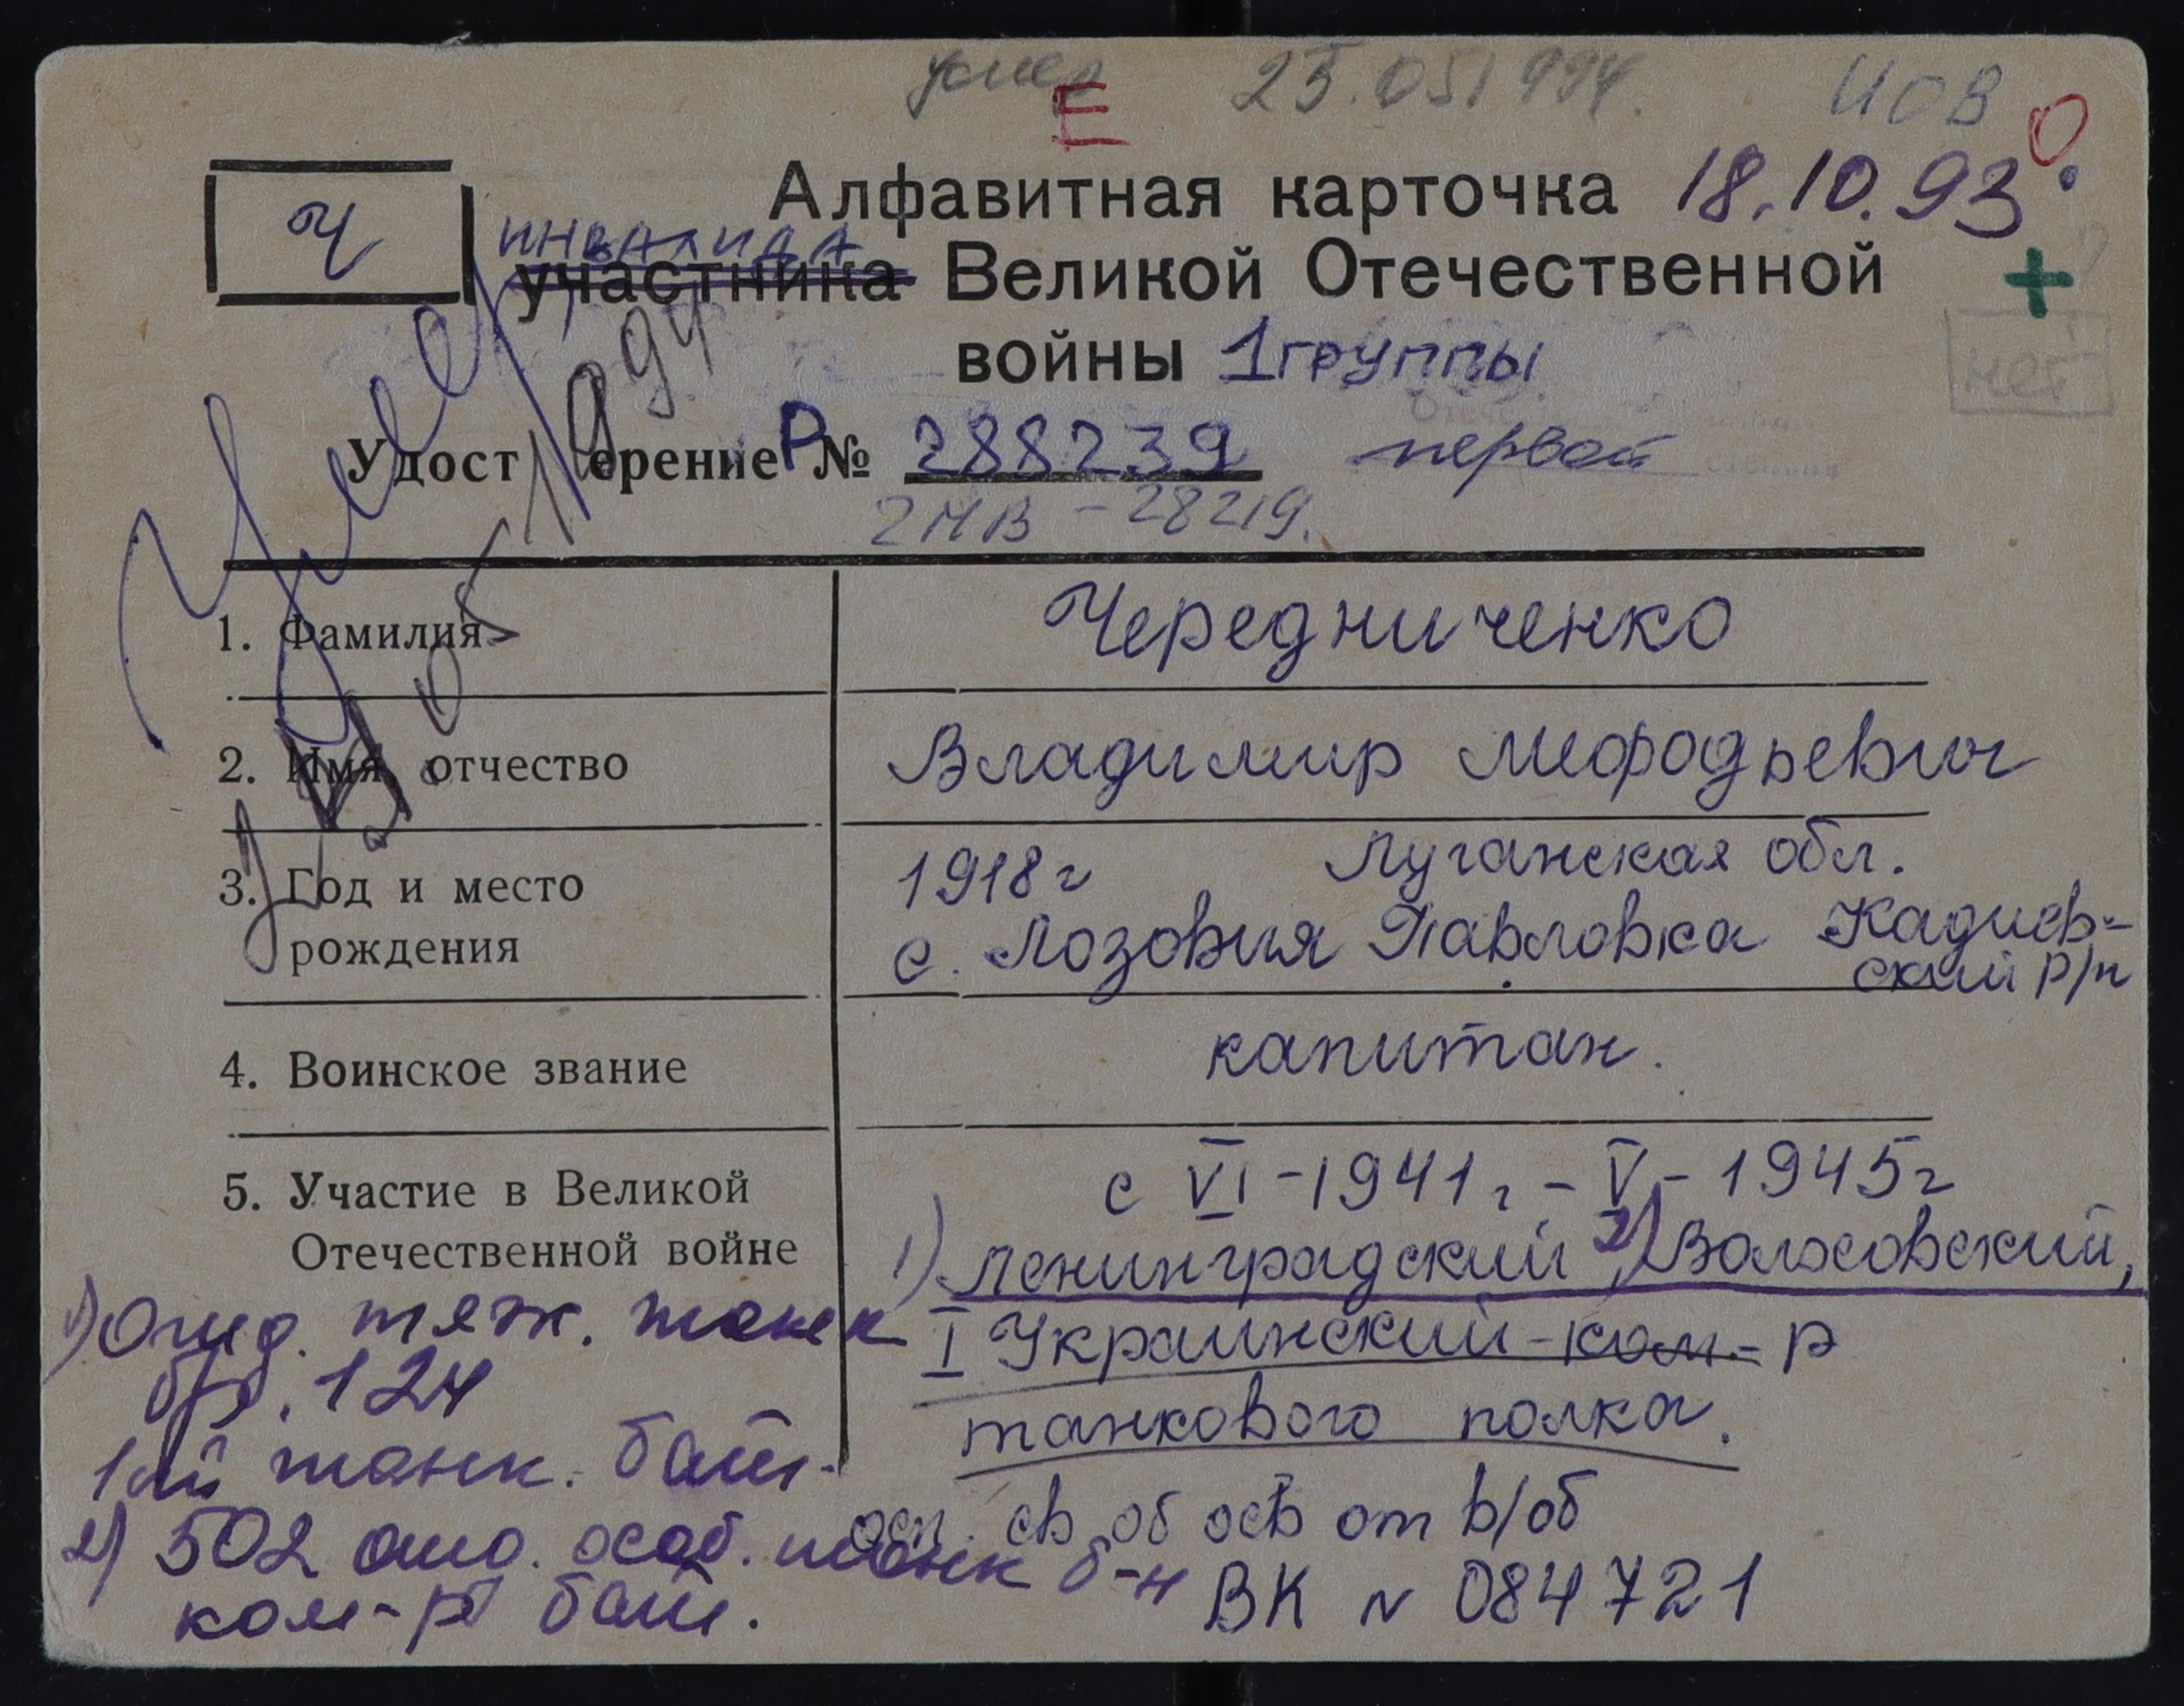 умер 25.05.1994. ИОВ
Е О
Ч
Алфавитная карточка 18.10.93
инвалида
участника Великой Отечественной +
войны 1 группы
нет
Удостоверение Р № 288239 первой
2МВ - 28219.
Умер
25.05.1994
1. Фамилия Чередниченко
2. Имя, отчество Владимир Мефодьевич
3. Год и место рождения 1918г Луганская обл.
с. Лозовия Павловка Кадиев-
ский р/н
4. Воинское звание капитан.
5. Участие в Великой Отечественной войне с VI-1941г-V-1945г
1) Ленинградский, 2) Волховский,
I Украинский - ком - р
танкового полка.
1) Отд. тяж. танк
бр. 124
1ый танк. бат.
2) 502 отд. особ. танк б-н
ком-р бат.
осн. св об осв от в/об
ВК N 084721